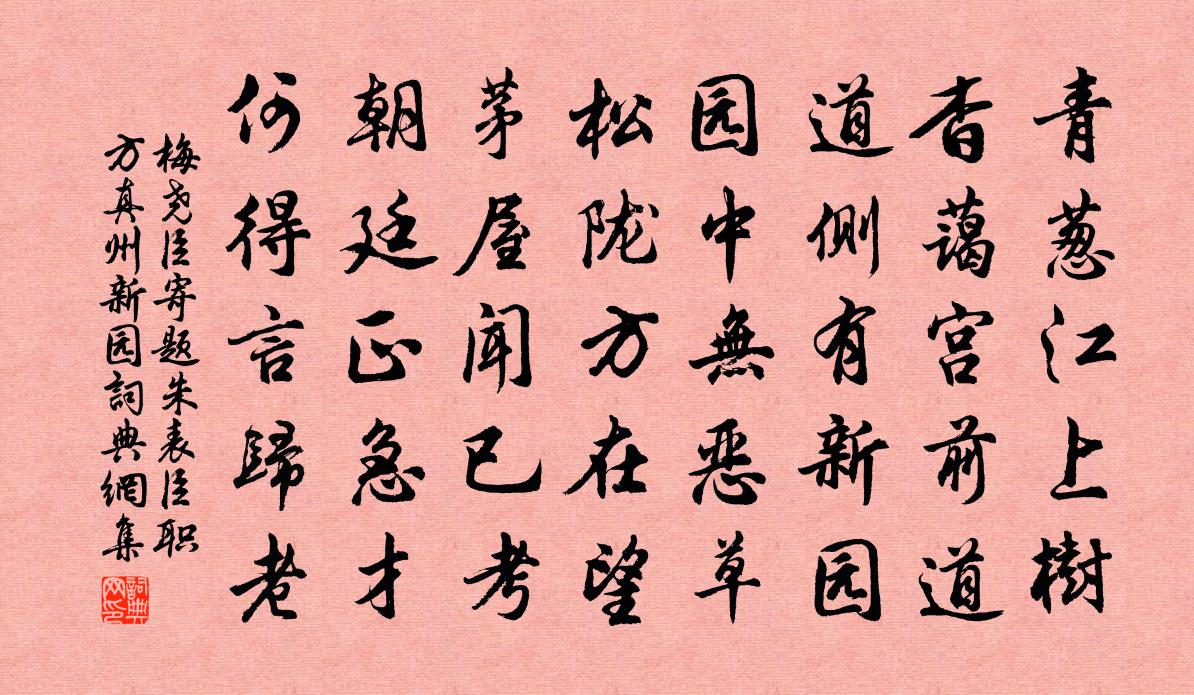 青葱江上樹
杳蔼宫前道
道側有新园
园中無惡草
松陇方在望
茅屋聞已考
朝廷正急才
何得言歸老
梅尧臣寄题朱表臣职
方真州新园詞典網集
詞典網印